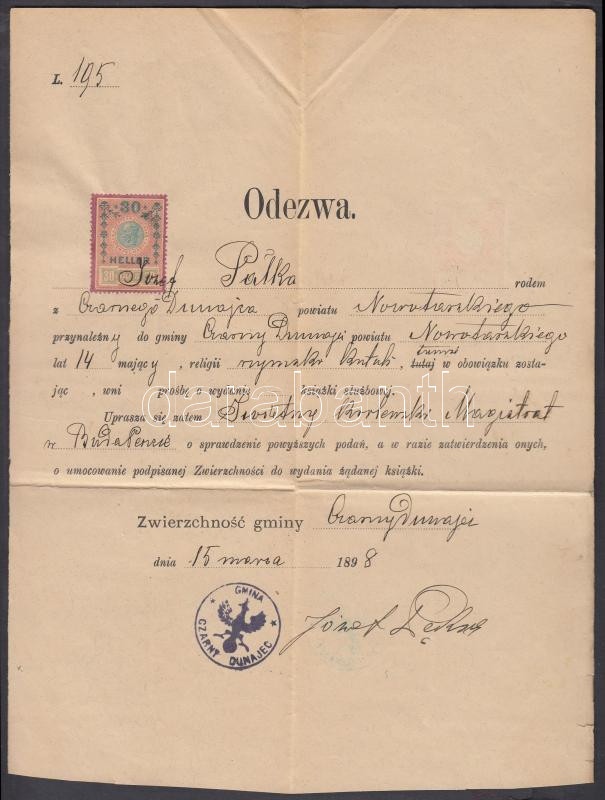 L. 195
Odezwa.
30
HELLER
30
Józef Pałka rodem
z Czarnego Dunajca powiatu Nowotarskiego
przynależny do gminy Czarny Dunajec powiatu Nowotarskiego
lat 14 mający, religii rzymsko tutaj w obowiązku zosta-
jąc, wni prośbę o wydanie książki służbowy.
Uprasza się zatem Świetny Królewski Magistrat
w o sprawdzenie powyższych podań, a w razie zatwierdzenia onych,
o umocowanie podpisanej Zwierzchności do wydania żądanej książki.
Zwierzchność gminy Czarny Dunajec
dnia 15 marca 1898
GMINA
CZARNY DUNAJEC
Józef
darabanth